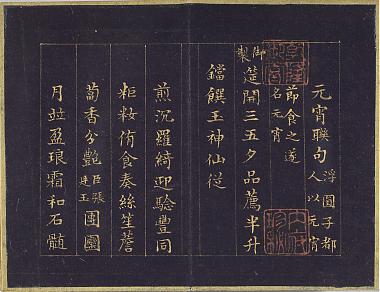 元宵聯句浮圓子都人以元宵
節食之遂名元宵
御製筵開三五夕品薦半升
鐺饌玉神仙從
煎沉羅綺迎驗豐同
粔籹侑食奏絲笙簷
蔔香分艷臣張廷玉團團
月竝盈琅霜和石髓